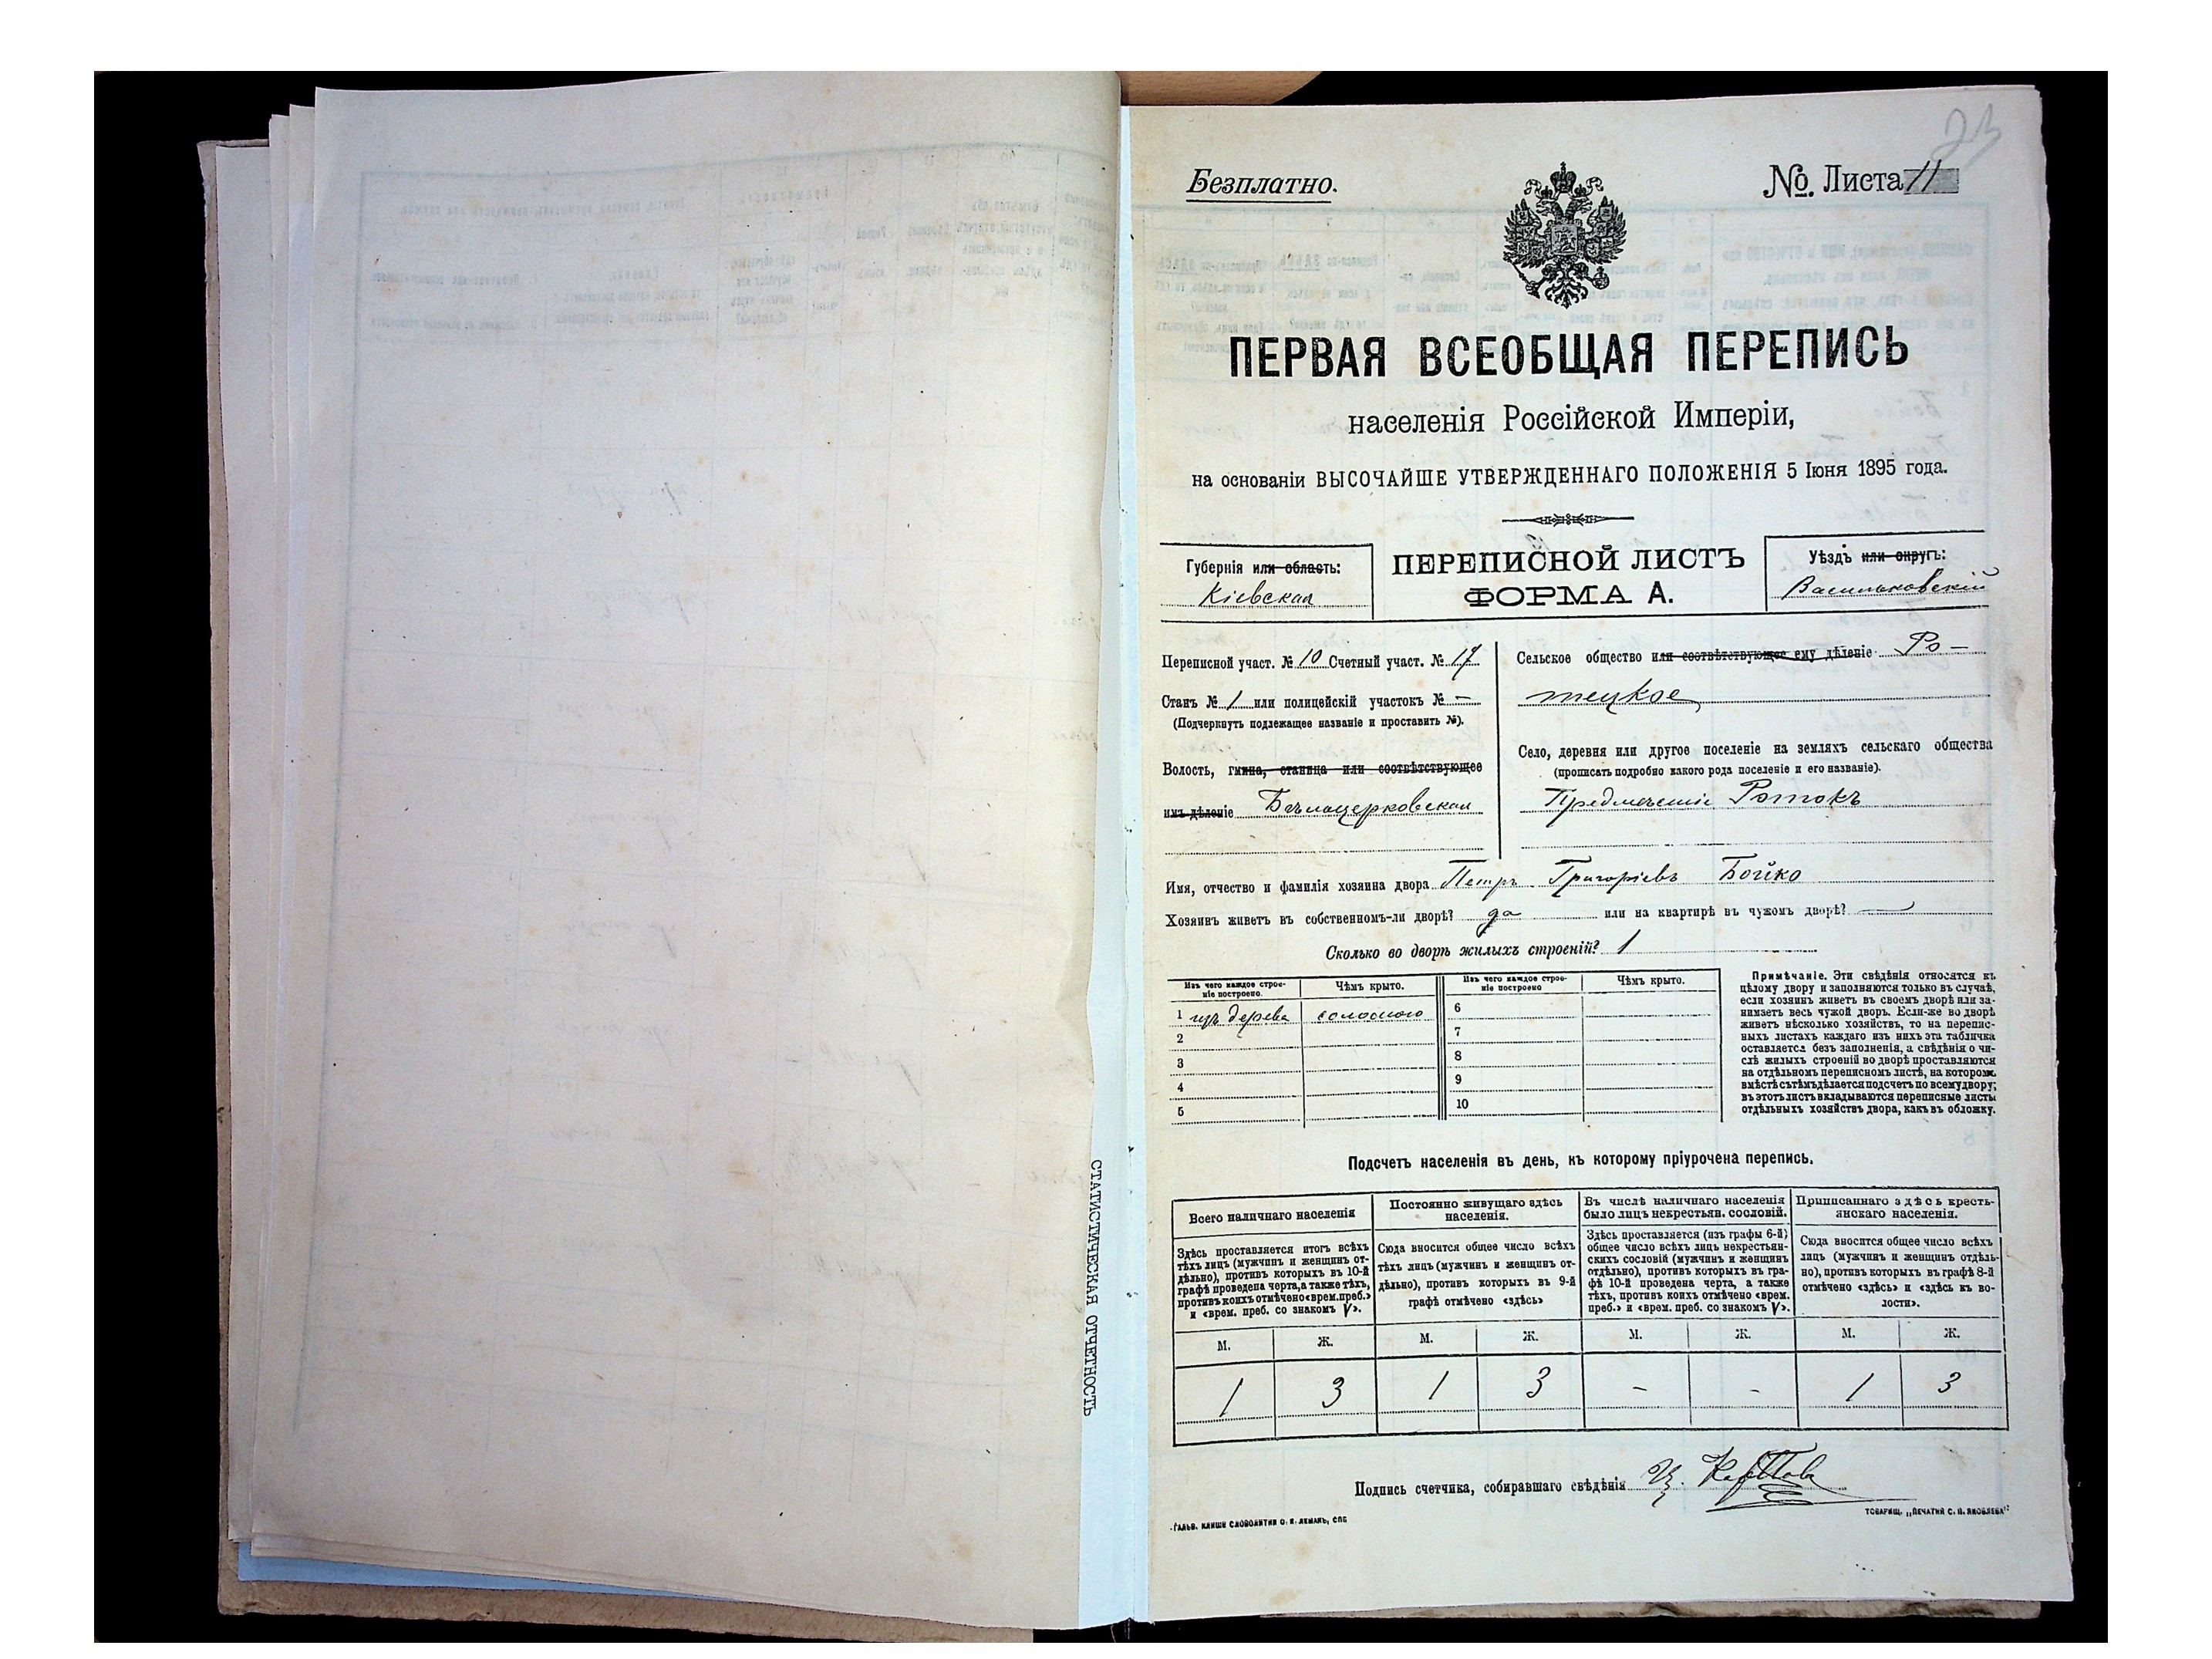 23
Безплатно.
№ Листа 11
ПЕРВАЯ ВСЕОБЩАЯ ПЕРЕПИСЬ
населенія Россійской Имперіи,
на основаніи ВЫСОЧАЙШЕ УТВЕРЖДЕННАГО ПОЛОЖЕНІЯ 5 Іюня 1895 года.
Губернія или область:
Кіевская
ПЕРЕПИСНОЙ ЛИСТЪ
ФОРМА А.
Уѣздъ или округъ:
Васильковскій
Переписной участ. № 10 Счетный участ. № 17
Станъ № 1 или полицейскій участокъ № —
(Подчеркнуть подлежащее названіе и проставить №).
Волость, гмина, станица или соотвѣтствующее
имъ дѣленіе Бѣлоцерковская
Сельское общество или соотвѣтствующее ему дѣленіе Ро-
тецкое
Село, деревня или другое поселеніе на земляхъ сельскаго общества
(прописать подробно какого рода поселеніе и его названіе).
Предмѣстіе Ротокъ
Имя, отчество и фамилія хозяина двора Петръ Григоріевъ Бойко
Хозяинъ живетъ въ собственномъ-ли дворѣ? да или на квартирѣ въ чужомъ дворѣ? —
Сколько во дворѣ жилыхъ строеній? 1
Изъ чего каждое строеніе построено. Чѣмъ крыто. Изъ чего каждое строеніе построено Чѣмъ крыто.
1 изъ дерева соломою 6
2 7
3 8
4 9
5 10
Примѣчаніе. Эти свѣдѣнія относятся къ
цѣлому двору и заполняются только въ случаѣ,
если хозяинъ живетъ въ своемъ дворѣ или за-
нимаетъ весь чужой дворъ. Если-же во дворѣ
живетъ нѣсколько хозяйствъ, то на перепис-
ныхъ листахъ каждаго изъ нихъ эта табличка
оставляется безъ заполненія, а свѣдѣнія о чи-
слѣ жилыхъ строеній во дворѣ проставляются
на отдѣльномъ переписномъ листѣ, на которомъ
вмѣстѣ съ тѣмъ дѣлается подсчетъ по всему двору;
въ этотъ листъ вкладываются переписные листы
отдѣльныхъ хозяйствъ двора, какъ въ обложку.
Подсчетъ населенія въ день, къ которому пріурочена перепись.
Всего наличнаго населенія
Здѣсь проставляется итогъ всѣхъ
тѣхъ лицъ (мужчинъ и женщинъ от-
дѣльно), противъ которыхъ въ 10-й
графѣ проведена черта, а также тѣхъ,
противъ коихъ отмѣчено «врем. преб.»
и «врем. преб. со знакомъ V».
Постоянно живущаго здѣсь
населенія.
Сюда вносится общее число всѣхъ
тѣхъ лицъ (мужчинъ и женщинъ от-
дѣльно), противъ которыхъ въ 9-й
графѣ отмѣчено «здѣсь»
Въ числѣ наличнаго населенія
было лицъ некрестьян. сословій.
Здѣсь проставляется (изъ графы 6-й)
общее число всѣхъ лицъ некрестьян-
скихъ сословій (мужчинъ и женщинъ
отдѣльно), противъ которыхъ въ гра-
фѣ 10-й проведена черта, а также
тѣхъ, противъ коихъ отмѣчено «врем.
преб.» и «врем. преб. со знакомъ V».
Приписаннаго здѣсь кресть-
янскаго населенія.
Сюда вносится общее число всѣхъ
лицъ (мужчинъ и женщинъ отдѣль-
но), противъ которыхъ въ графѣ 8-й
отмѣчено «здѣсь» и «здѣсь къ во-
лости».
М. Ж. М. Ж. М. Ж. М. Ж.
1 3 1 3 - - 1 3
Подпись счетчика, собиравшаго свѣдѣнія
ГАЛЬВ. КЛИШЕ СЛОВОЛИТНИ О. И. ЛЕМАНЪ, СПБ
ТОВАРИЩ. „ПЕЧАТНЯ С. П. ЯКОВЛЕВА“
СТАТИСТИЧЕСКАЯ ОТЧЕТНОСТЬ